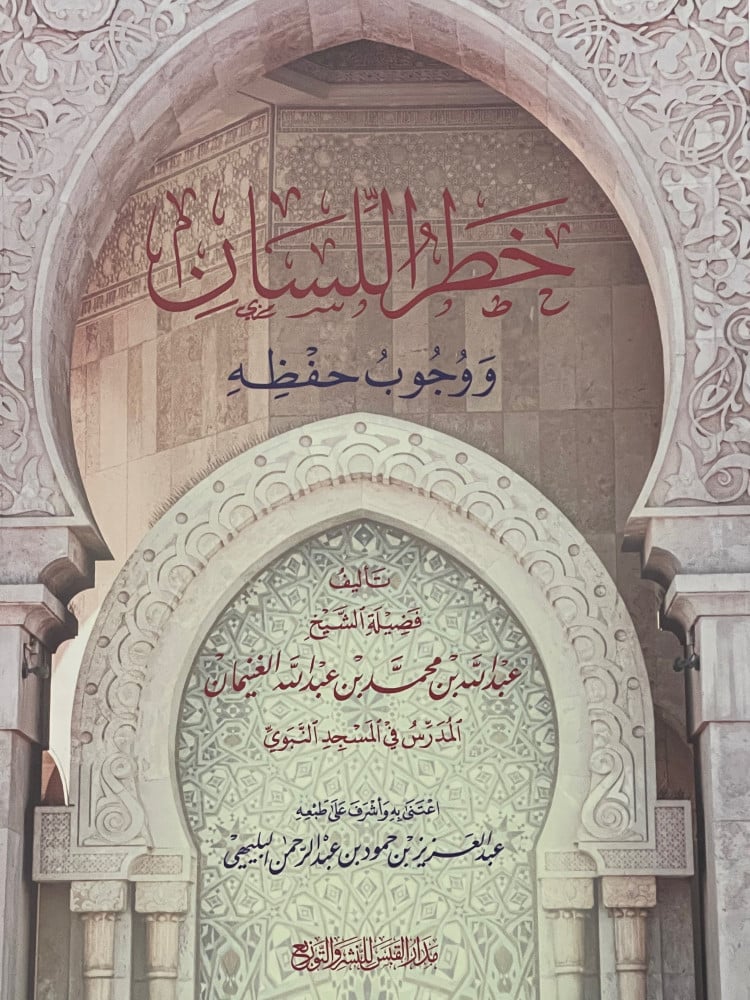 خَطَرُ اللِّسَانِ
وَوُجُوبُ حفْظِهِ
تَأليفُ
فَضِيلَةِ الشَّيْخِ
عَبْدِ اللهِ بْنِ مُحَمَّد بْنِ عَبْدِ اللهِ الغُنَيْمَانْ
المُدَرِّسُ فِي المَسْجِدِ النَّبَوِيِّ
اعْتَنَى بِهِ وَأَشْرَفَ عَلَى طَبْعِهِ
عبد العَزيز بْن حمود بن عَبْد الرَّحمن البليهي
مدار القبس للنشر والتوزيع